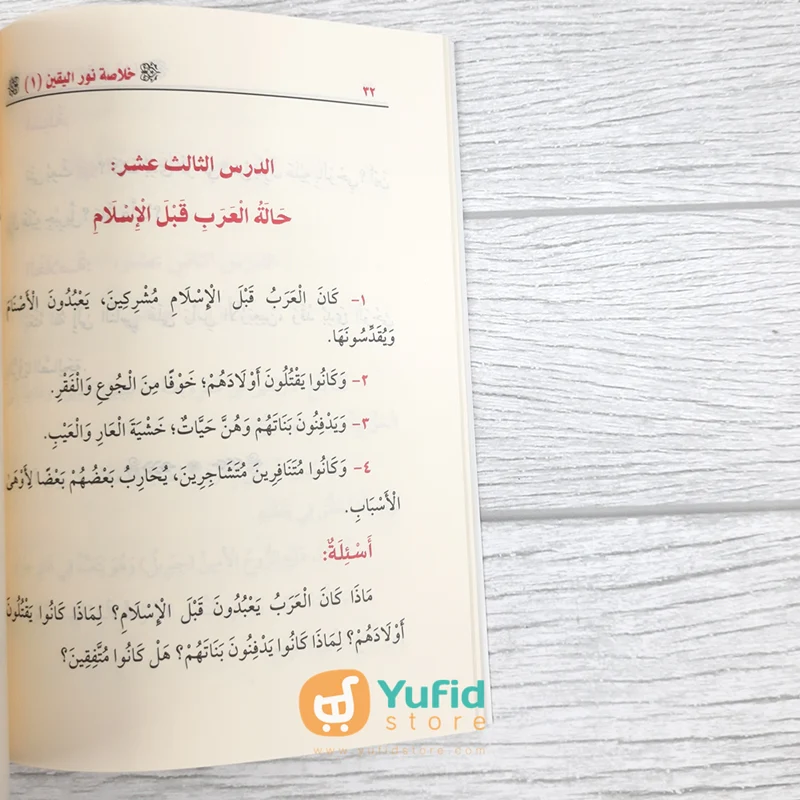 خلاصة نور اليقين (١)
٣٢
الدرس الثالث عشر:
حَالَةُ الْعَرَبِ قَبْلَ الْإِسْلَامِ
١- كَانَ الْعَرَبُ قَبْلَ الْإِسْلَامِ مُشْرِكِينَ، يَعْبُدُونَ الْأَصْنَامَ
وَيُقَدِّسُونَهَا.
٢- وَكَانُوا يَقْتُلُونَ أَوْلَادَهُمْ؛ خَوْفًا مِنَ الْجُوعِ وَالْفَقْرِ.
٣- وَيَدْفِنُونَ بَنَاتَهُمْ وَهُنَّ حَيَّاتٌ؛ خَشْيَةَ الْعَارِ وَالْعَيْبِ.
٤- وَكَانُوا مُتَنَافِرِينَ مُتَشَاجِرِينَ، يُحَارِبُ بَعْضُهُمْ بَعْضًا لِأَوْهَى
الْأَسْبَابِ.
أَسْئِلَةٌ:
مَاذَا كَانَ الْعَرَبُ يَعْبُدُونَ قَبْلَ الْإِسْلَامِ؟ لِمَاذَا كَانُوا يَقْتُلُونَ
أَوْلَادَهُمْ؟ لِمَاذَا كَانُوا يَدْفِنُونَ بَنَاتَهُمْ؟ هَلْ كَانُوا مُتَّفِقِينَ؟
Yufid
store
www.yufidstore.com